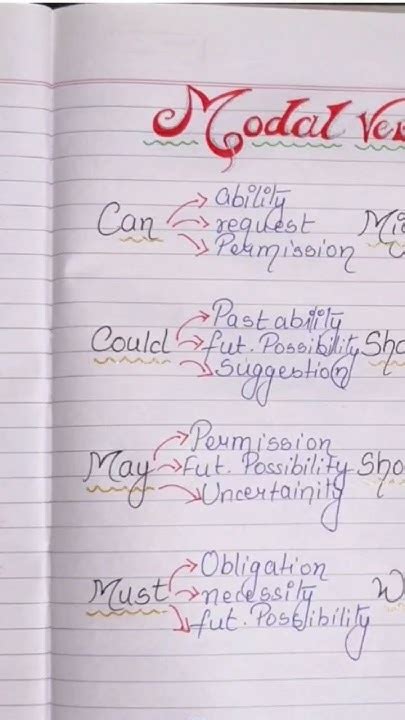 Modal Ver
Can
ability
request
Permission
Mi
Could
Past ability
fut. Possibility
Suggestion
Sho
May
Permission
Fut. Possibility
Uncertainity
Sho
Must
Obligation
necessity
fut. Posslibility
W